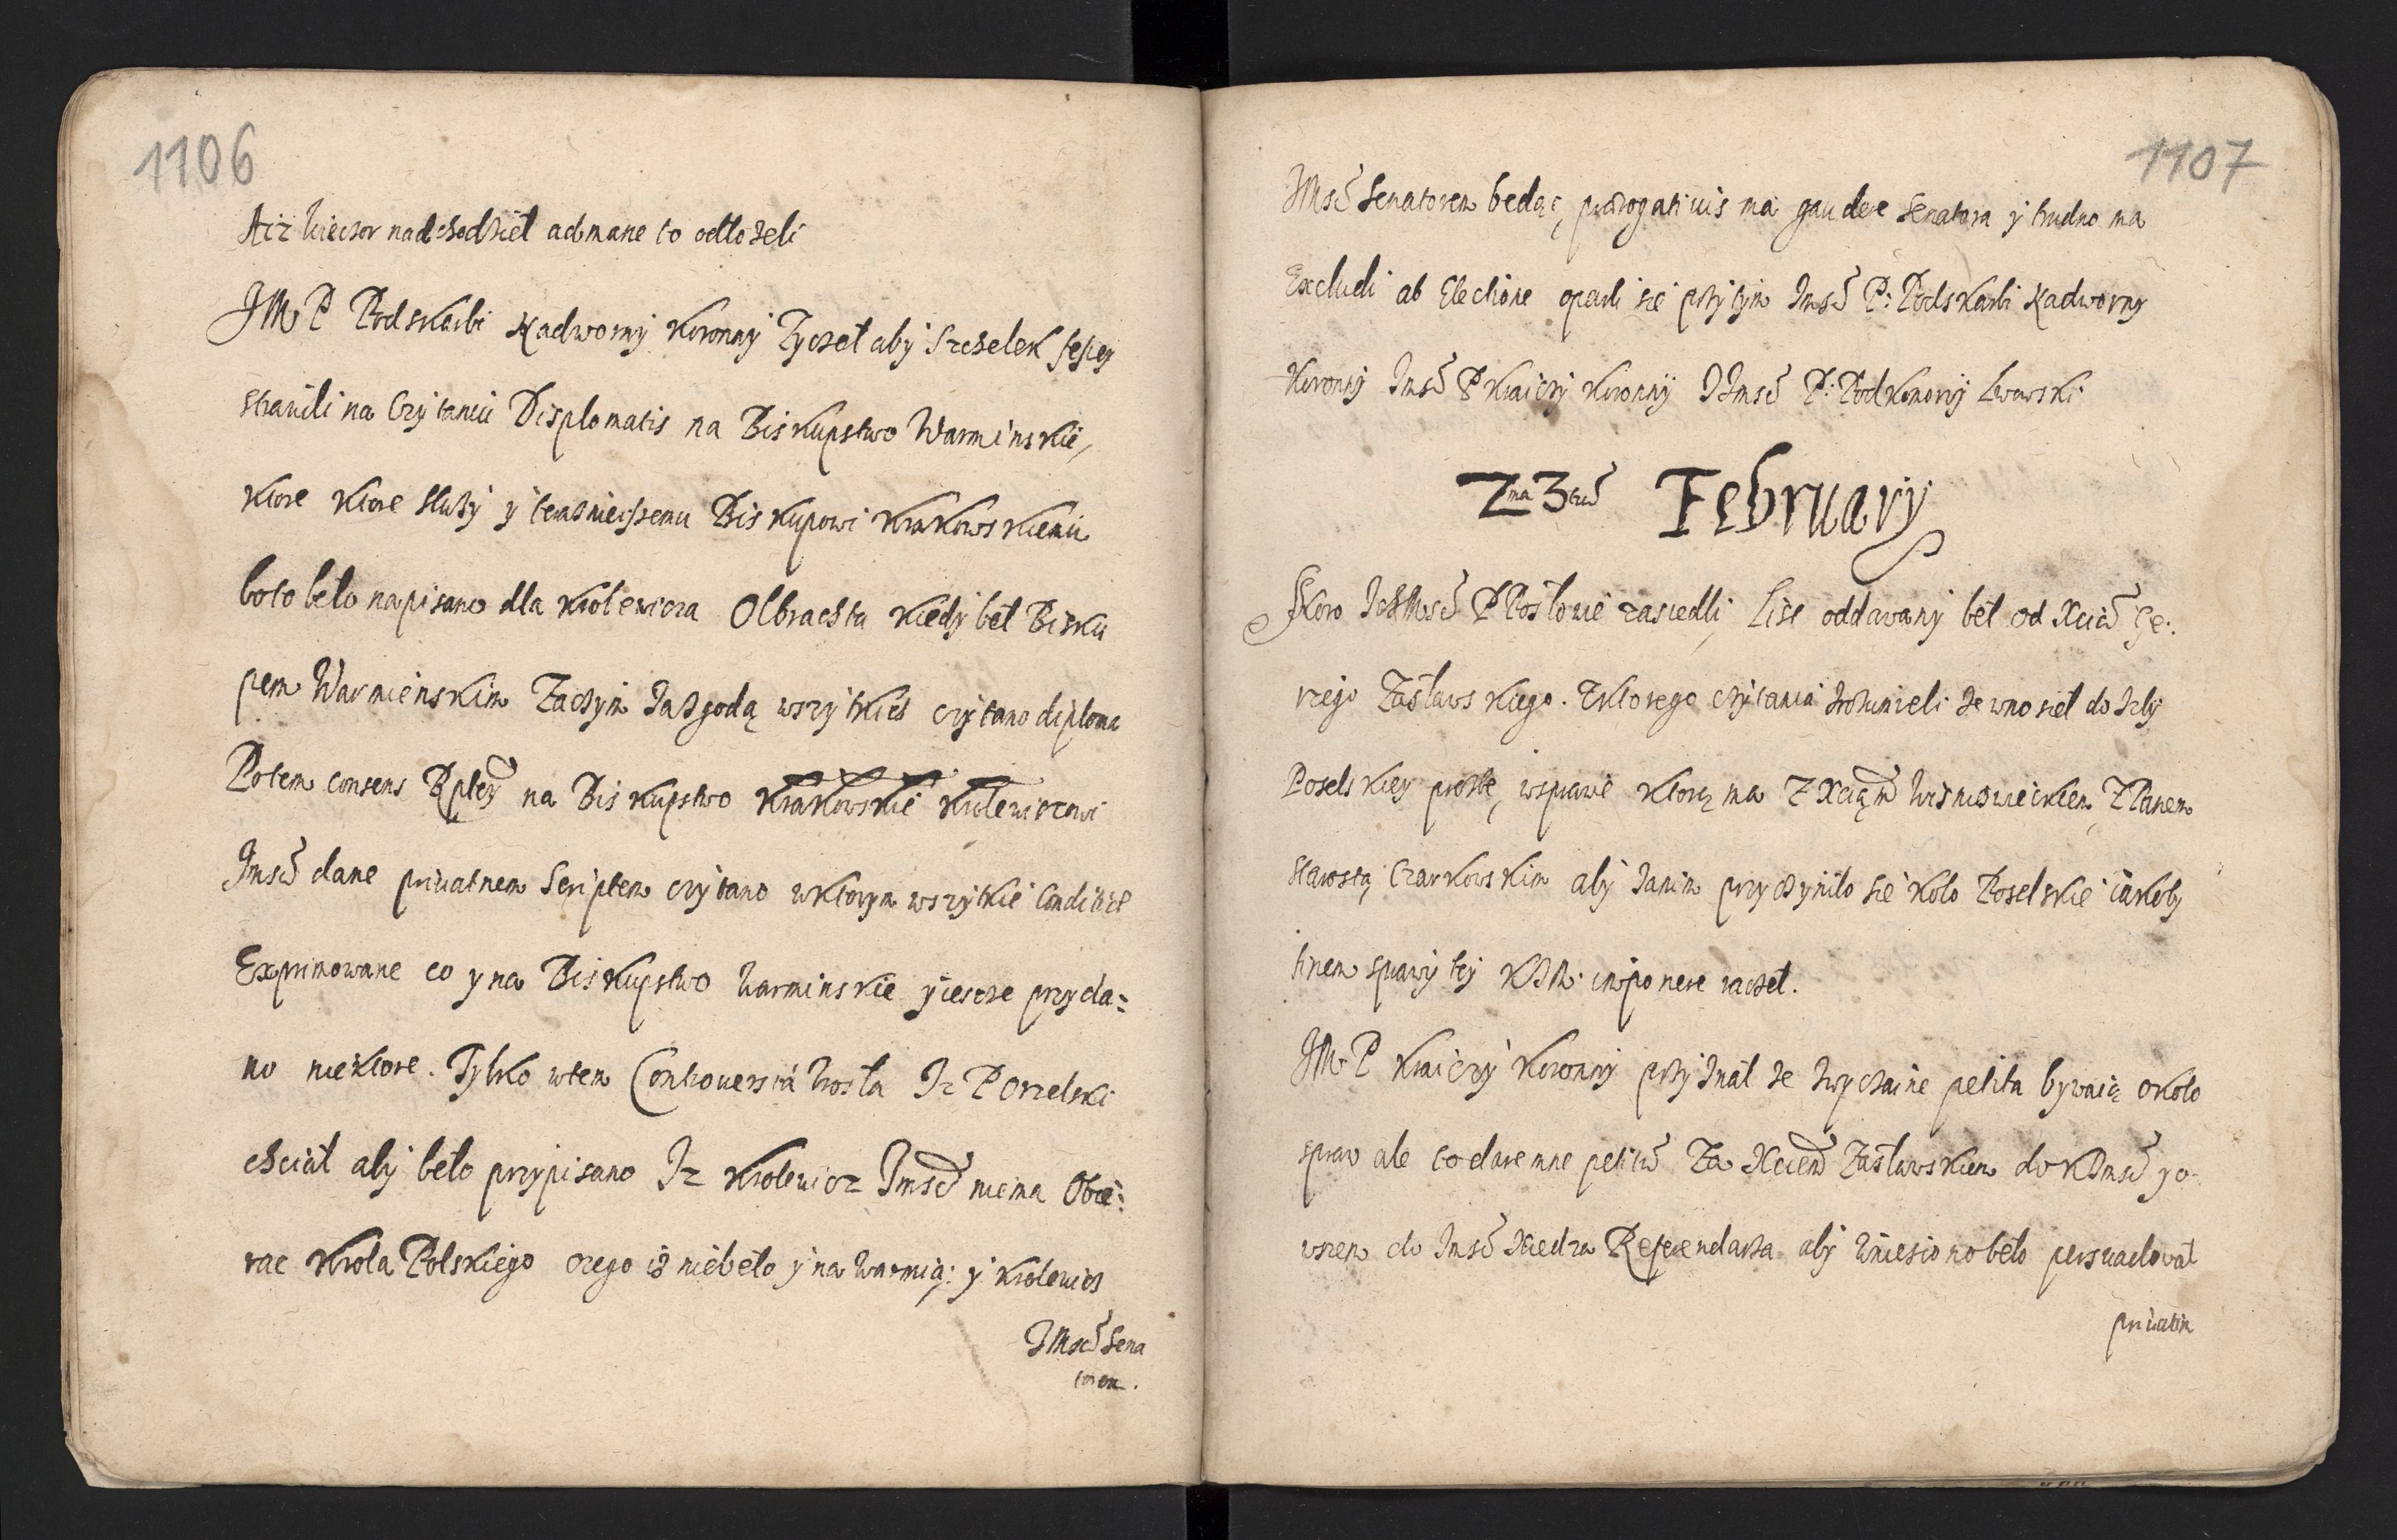 1106
Aiz Wieczor nadchodził ad mane to odłozeli
JM P Podskarbi Nadworny Koronny Zyczeł aby Szczelek
strawili na Czytaniu Displomatis na Biskupstwo Warminskie,
Ktore Ktore służy y terazniejszemu Biskupowi Krakowskiemu
bo to beło napisano dla Krolewicza Olbrachta Kiedy beł Bisku
pem Warmienskim Zaczym za zgodą wszytkich czytano diploma
Potem consens Rptey na Biskupstwo Krakowskie Krolewiczowi
Jmsci dane priuatnem Scriptem czytano w ktorym wszytkie Conditie
Exprimowane co y na Biskupstwo Warminskie y iescze przyda:
no niektore. Tylko w tem Controuersia Urosła Iz P Orzelski
chciał aby beło przypisano Iz Krolewicz Jmsć niema Obie:
rac Krola Polskiego czego iż niebeło y na Warmią: y Krolewicz
JMsć Sena
torem.
1107
JMsć Senatorem bedąc, praerogatiuis ma gaudere Senatora y trudno ma
Excludi ab Electione oparli się przytym Jmsć P: Podskarbi Nadworny
Koronny Jmsć P Kraiczy Koronny I Jmsć P: Podkomorzy Lwowski
Februarij
Skoro Ichmsć PPosłowie zasiedli, List oddawany beł od Xcia Je:
rzego Zasławskiego. Z ktorego czytania zrozumieli ze wnosieł do Izby
Poselskiey prozbe, w sprawie Ktorą ma Z Xciąm Wisniowieckiem, Z Panem
Starostą Czarkowskim aby zanim przyczyniło się Koło Poselskie iakoby
finem sprawy tey KJM imponere raczeł.
JM P Kraiczy Koronny przyznał ze zwyczaine petita bywaią około
spraw ale to daremne petita Za Xciem Zasławskiem do KJmsci y o
wszem do Jmsci Xiedza Referendarza aby Wniesiono beło persuadował
priuatim